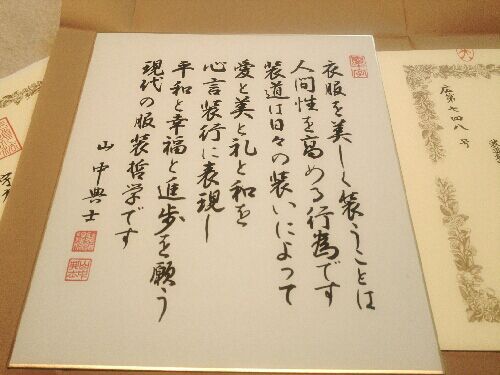 衣服を美しく装うことは
人間性を高める行為です
装道は日々の装いによって
愛と美と礼と和を
心言装行に表現し
平和と幸福と進歩を願う
現代の服装哲学です
山中典士
広第七四八号